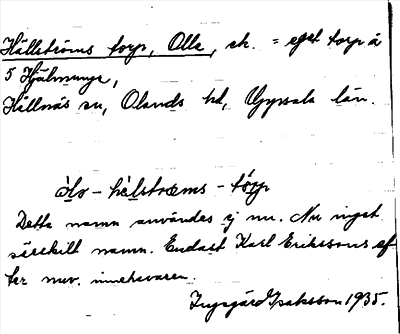 Hållströms torp, Olle, ek. = eget torp å
5 Hjälmunge,
Hållnäs sn, Olands hd, Uppsala län.
Olo - hålstroms - torp
Detta namn användes ej nu. Nu inget
särskilt namn. Endast Karl Erikssons ef
ter nuv. innehavaren.
Ingegärd Isaksson 1935.